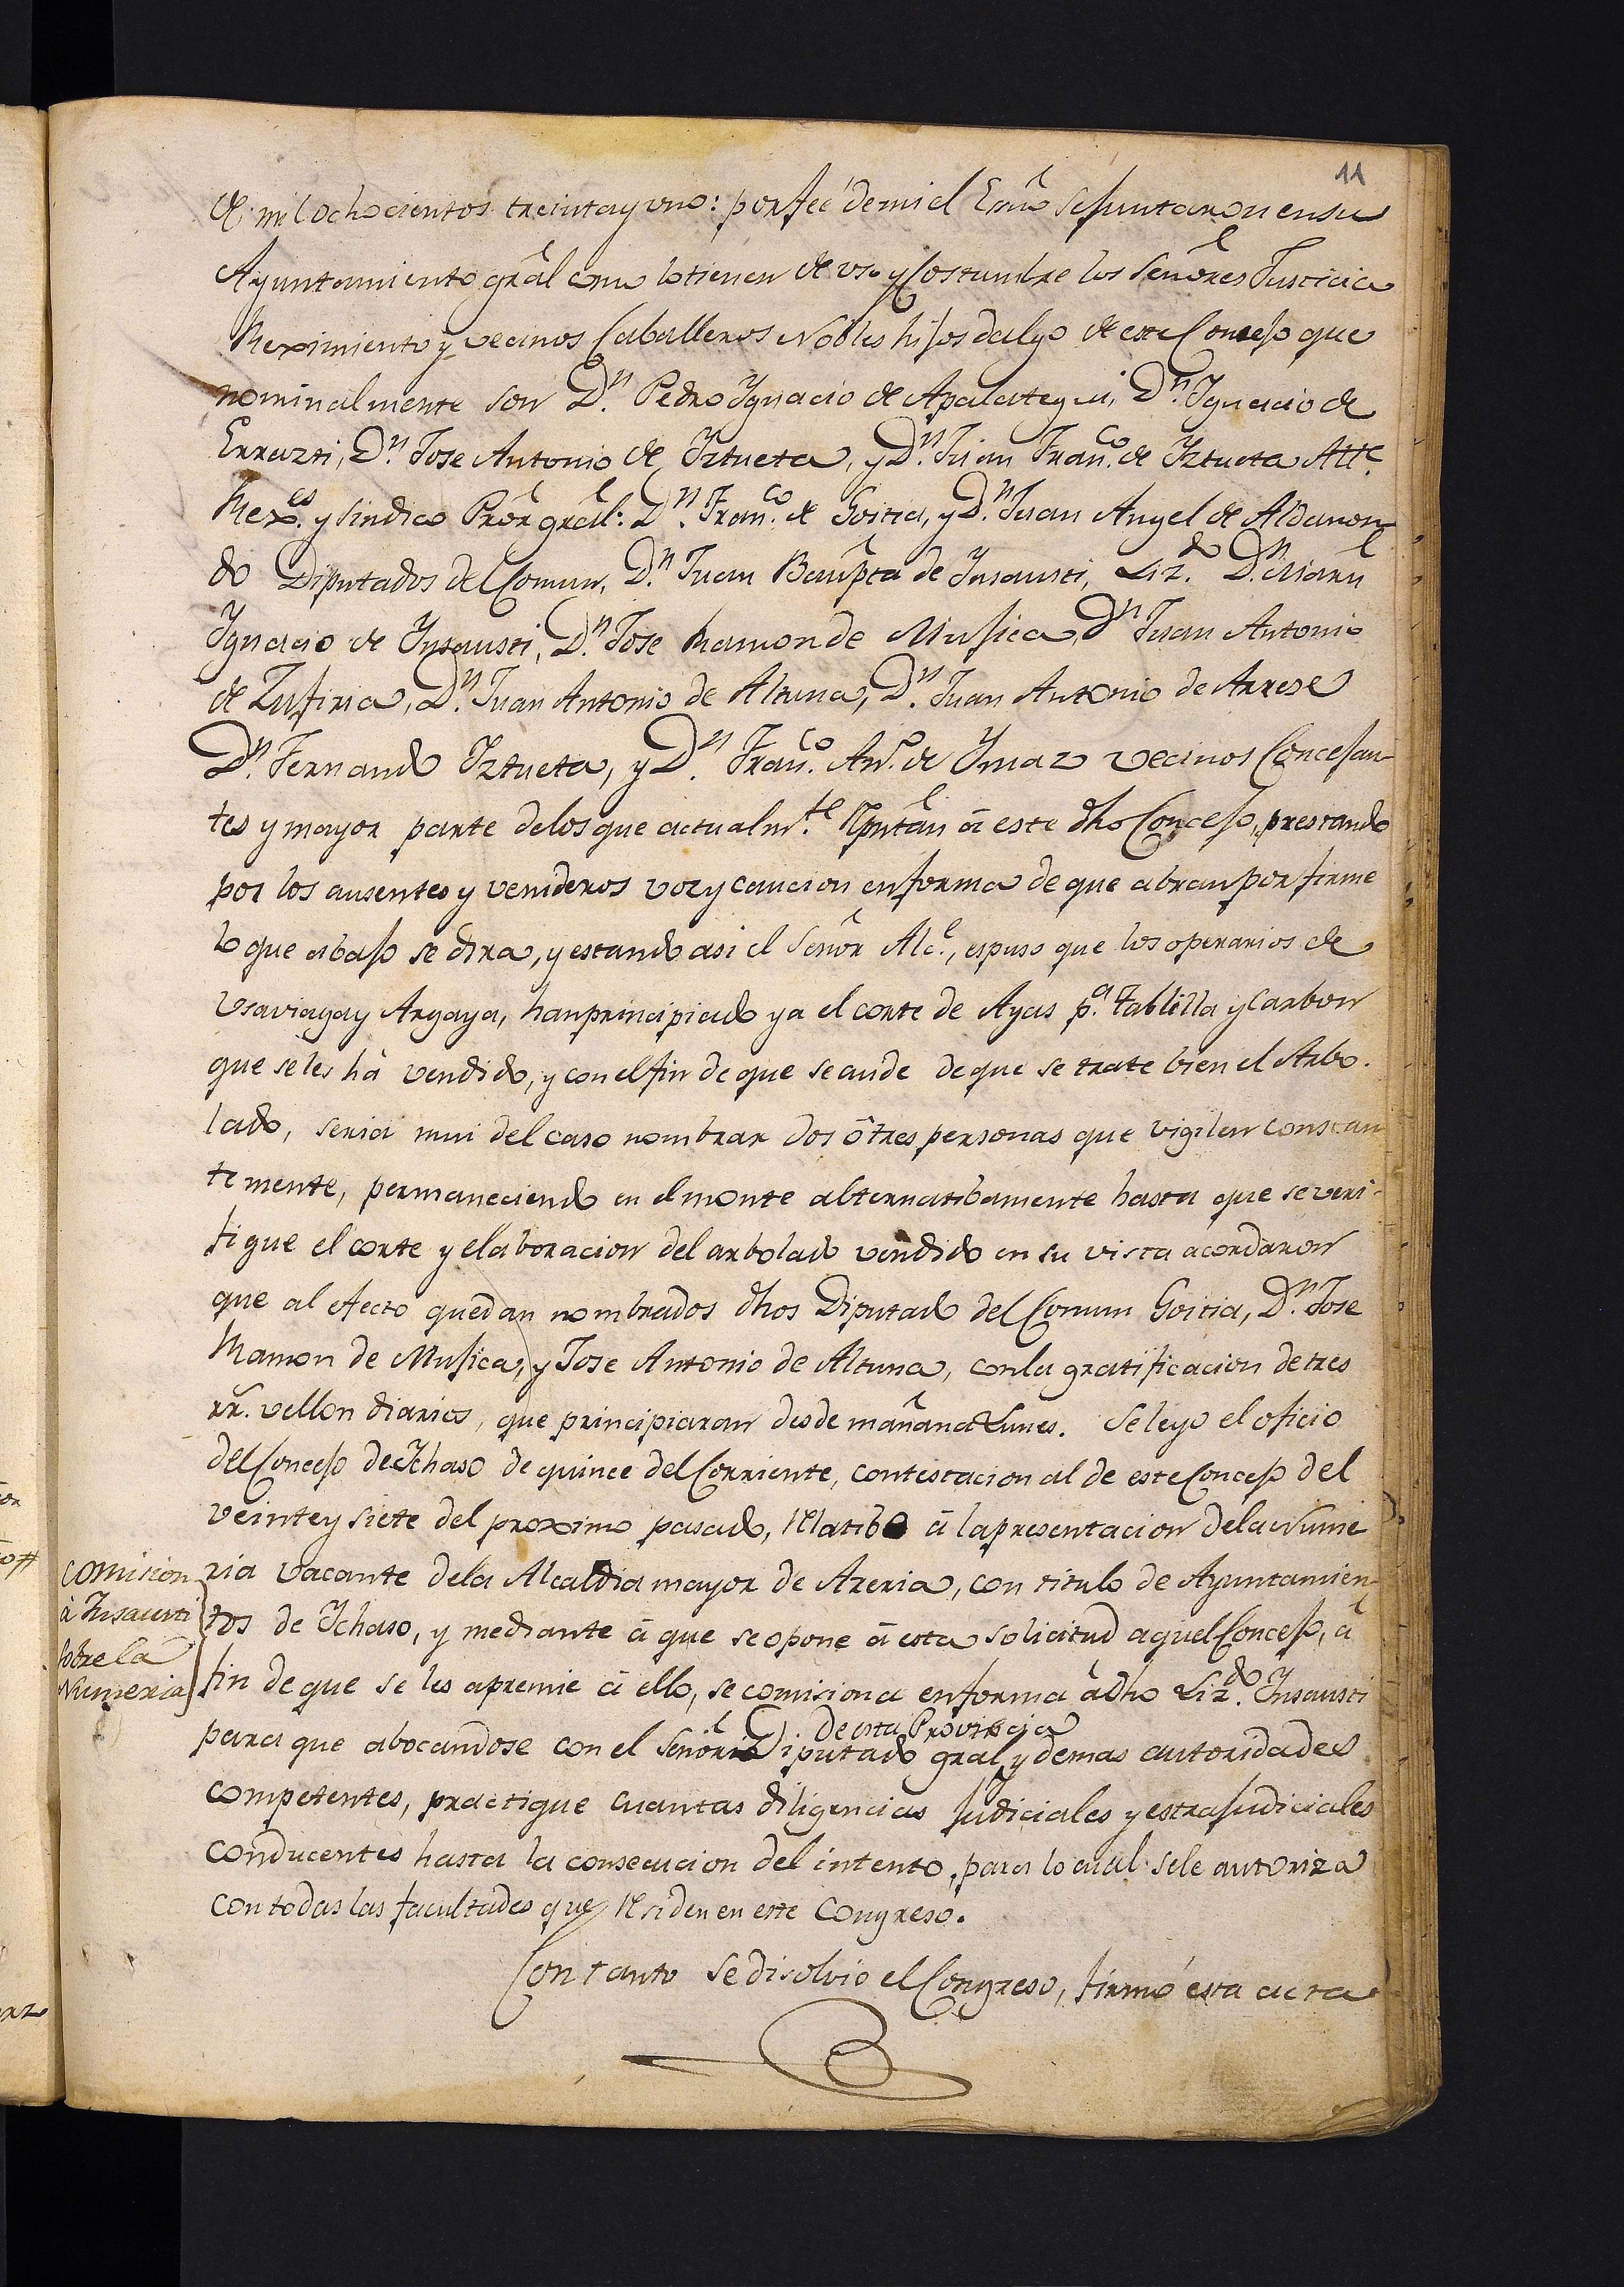 11
de mil ochocientos treinta y uno: por fee de mi el Esnõ se juntaron en su
Ayuntamiento grãl como lo tienen de uso y Costumbre los Señores Justicia
Reximiento y vecinos Caballeros Nobles hijos dalgo de este Concejo que
nominalmente son Dn. Pedro Ygnacio de Apalategui, Dn. Ygnacio de
Errazti, Dn. Jose Antonio de Iztueta, y Dn. Juan Franco. de Iztueta Alle.
Rexes. y sindico Prõr grãl: Dn. Franco. de Goitia, y Dn. Juan Angel de Aldanon-
do Diputados del Comun, Dn. Juan Baupta de Ynsausti, Lizdo. Dn. Marñ
Ygnacio de Ynsausti, Dn. Jose Ramon de Mujica, Dn. Juan Antonio
de Zufiria, Dn. Juan Antonio de Altuna, Dn. Juan Antonio de Arrese
Dn. Fernando Iztueta, y Dn. Franco. Anto. de Ymaz vecinos Concejan-
tes y mayor parte de los que actualmte. Rputan â este dho Concejo, prestando
por los ausentes y venideros voz y caucion en forma de que abran por firme
lo que abajo se dira, y estando asi el Señor Alce., espuso que los operarios de
Usaviaga y Argaya, han principiado ya el corte de Ayas pa. Tablilla y Carbon
que se les hâ vendido, y con el fin de que se cuide de que se trate bien el Arbo-
lado, seria mui del caso nombrar dos ô tres personas que vigilen constan
temente, permaneciendo en el monte alternatibamente hasta que se veri-
fique el corte y elaboracion del arbolado vendido en su vista acordaron
que al efecto quedan nombrados dhos Diputado del Comun Goitia, Dn. Jose
Ramon de Mujica, y Jose Antonio de Altuna, con la gratificacion de tres
rr̃. vellon diarios, que principiaran desde mañana Lunes. Se leyo el oficio
del Concejo de Ychaso de quince del Corriente, contestacion al de este Concejo del
veinte y siete del proximo pasado, Relatibo â la presentacion de la Nume
comision
â Insausti
sobre la
Numeria
ria vacante de la Alcaldia mayor de Areria, con titulo de Ayuntamien-
tos de Ychaso, y mediante â que se opone â esta solicitud aquel Concejo, â
fin de que se les apremie â ello, se comisiona en forma â dho Lizdo. Insausti
de esta Provincia
para que abocandose con el Señor Diputado gral, y demas autoridades
competentes, practique cuantas diligencias Judiciales y estrajudiciales
conducentes hasta la consecucion del intento, para lo cual se le autoriza
con todas las facultades que Residen en este Congreso.
Con tanto se disolvio el Congreso, firmó esta acta